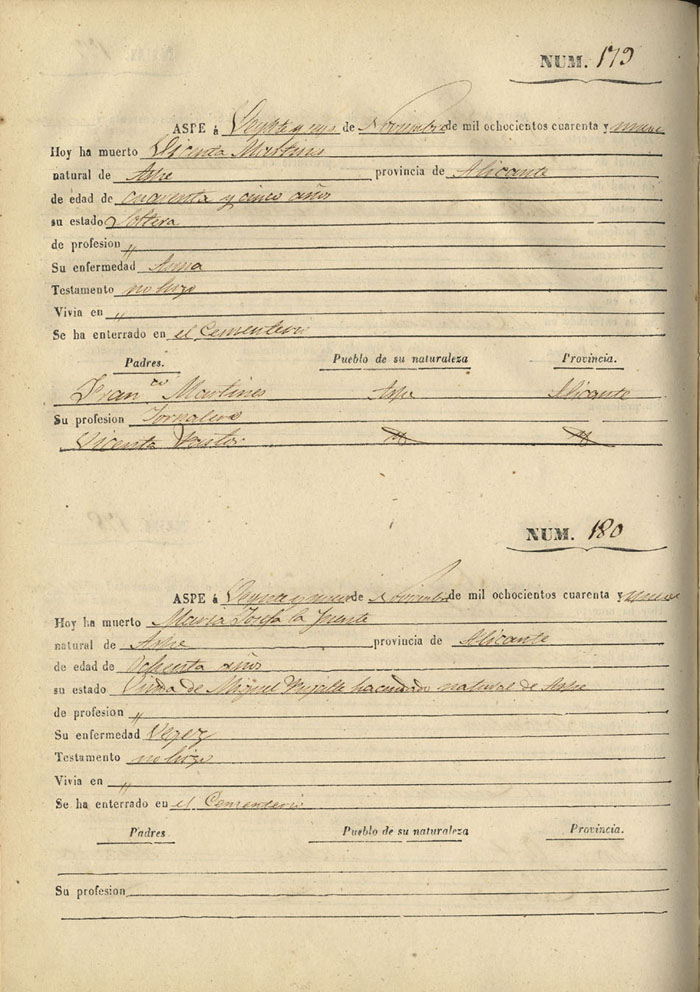 NUM. 179
ASPE á de Noviembre de mil ochocientos cuarenta y nueve
Hoy ha muerto Vicenta Martines
natural de Aspe provincia de Alicante
de edad de cuarenta y cinco años
su estado Soltera
de profesion "
Su enfermedad Asma
Testamento no hizo
Vivia en "
Se ha enterrado en el Cementerio
Padres. Pueblo de su naturaleza Provincia.
Fran.co Martines Aspe Alicante
Su profesion Jornalero
Vicenta Pastor
NUM. 180
ASPE á de Noviembre de mil ochocientos cuarenta y nueve
Hoy ha muerto Maria Josefa la Fuente
natural de Aspe provincia de Alicante
de edad de Ochenta años
su estado Viuda de Miguel hacendado natural de Aspe
de profesion "
Su enfermedad Vegez
Testamento no hizo
Vivia en "
Se ha enterrado en el Cementerio
Padres. Pueblo de su naturaleza Provincia.
Su profesion